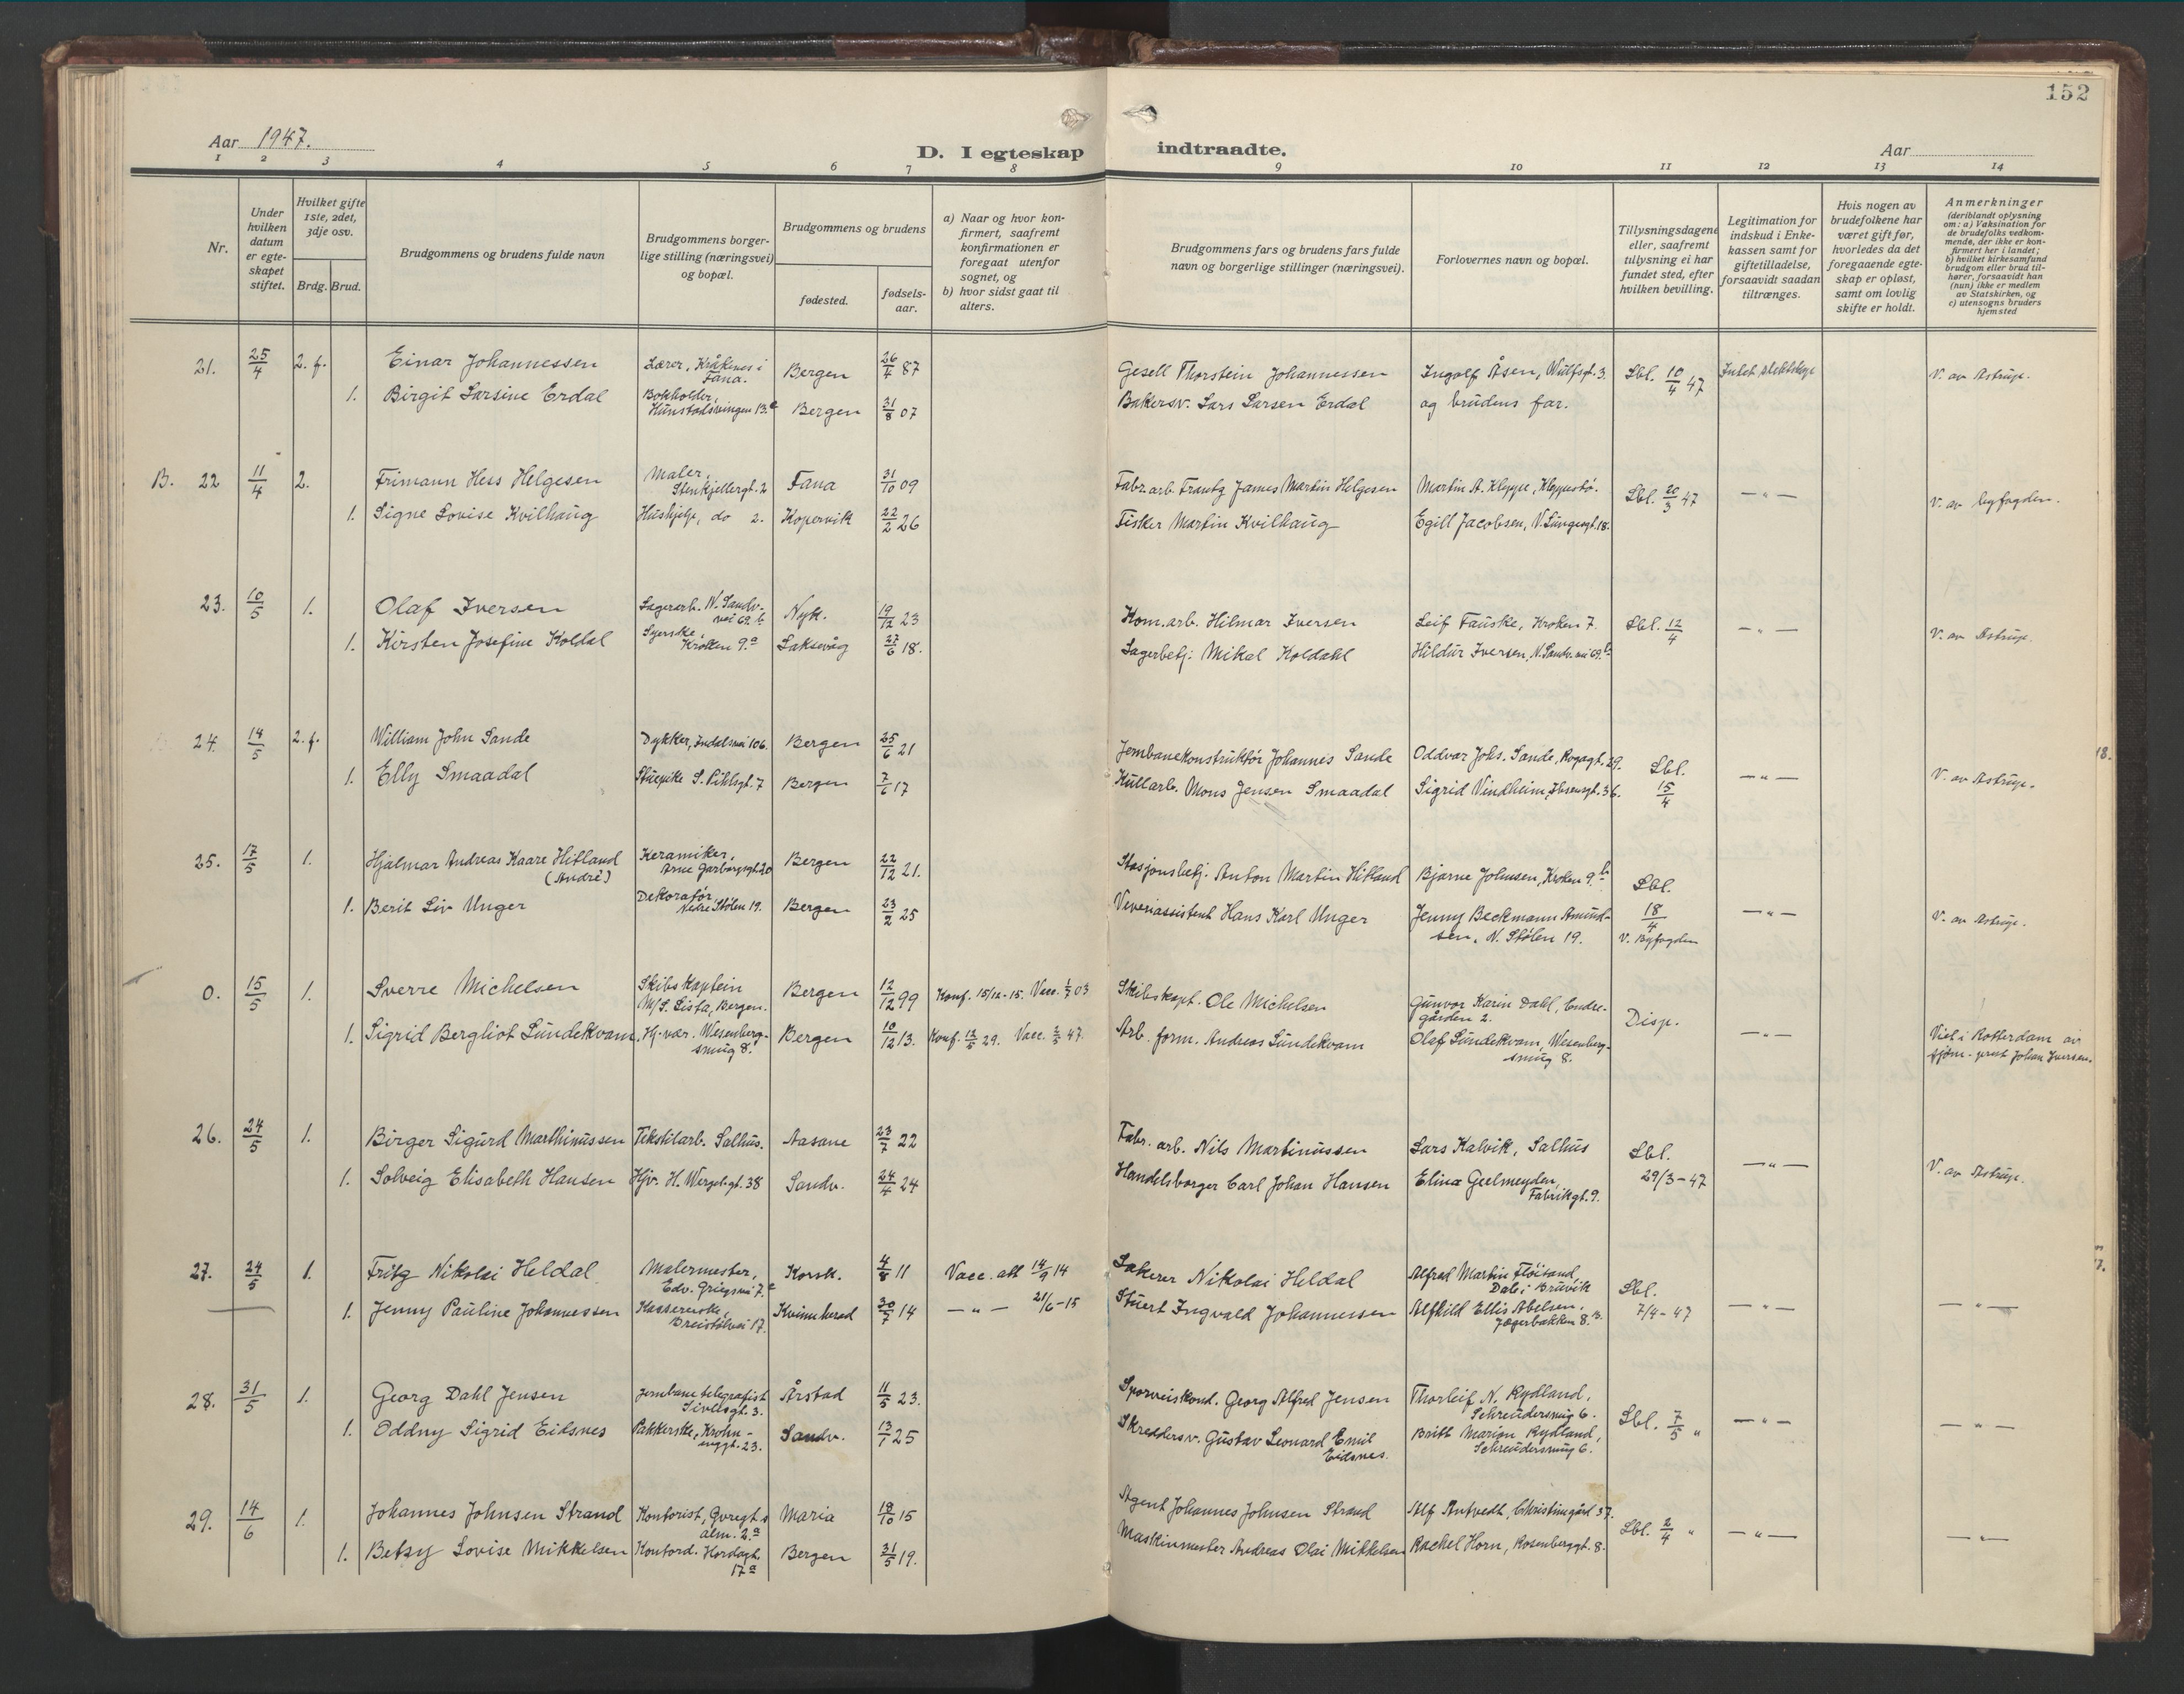 152
Aar 1947.
D. I egteskap indtraadte.
Aar
1 2 3 4 5 6 7 8 9 10 11 12 13 14
Nr.
Under hvilken datum er egte-skapet stiftet.
Hvilket gifte 1ste, 2det, 3dje osv.
Brdg. Brud.
Brudgommens og brudens fulde navn
Brudgommens borger-lige stilling (næringsvei) og bopæl.
Brudgommens og brudens
fødested.
fødsels-aar.
a) Naar og hvor kon-firmert, saafremt konfirmationen er foregaat utenfor sognet, og
b) hvor sidst gaat til alters.
Brudgommens fars og brudens fars fulde navn og borgerlige stillinger (næringsvei).
Forlovernes navn og bopæl.
Tillysningsdagene eller, saafremt tillysning ei har fundet sted, efter hvilken bevilling.
Legitimation for indskud i Enke-kassen samt for giftetilladelse, forsaavidt saadan tiltrænges.
Hvis nogen av brudefolkene har været gift før, hvorledes da det foregaaende egte-skap er opløst, samt om lovlig skifte er holdt.
Anmerkninger (deriblandt oplysning om: a) Vaksination for de brudefolks vedkom-mende, der ikke er kon-firmert her i landet; b) hvilket kirkesamfund brudgom eller brud til-hører, forsaavidt han (hun) ikke er medlem av Statskirken, og c) utensogns bruders hjemsted
21. 25/4 2. f. Einar Johannessen Lærer, Kråknes i Fana. Bergen 26/4 87 Gesell Thorstein Johannessen Ingolf Åsen, Wulfsgt. 3. Lbl. 10/4 47 Intet slektskap V. av Astrup.
1. Birgit Larsine Erdal Bokholder, Hunstadsvingen 13. Bergen 31/8 07 Bakersv. Lars Larsen Erdal og brudens far.
B. 22 11/4 2. Frimann Hess Helgesen Maler, Stenkjellergt. 2 Fana 31/10 09 Fabr. arb. Frantz James Martin Helgesen Martin A. Kleppe, Kleppestø. Lbl. 20/3 47 — " — V. av byfogden.
1. Signe Lovise Kvilhaug Hushjelp, do 2. Kopervik 22/2 26 Fisker Martin Kvilhaug Egill Jacobsen, V. Lungegt. 18.
23. 10/5 1. Olaf Iversen Lagerarb. N. Sandv-vei 69. b Nyk. 19/12 23 Kom. arb. Hilmar Iversen Leif Fauske, Kroken 7. Lbl. 12/4 — " — V. av Astrup.
1. Kirsten Josefine Koldal Syerske, Kroken 9.a Laksevåg 27/6 18. Lagerbetj: Mikal Koldahl Hildur Iversen, N. Sandv. vei 69. b
24. 14/5 2. f. William John Sande Dykker, Indalsvei 106. Bergen 25/6 21 Jernbanekonstruktør Johannes Sande Oddvar Johs. Sande, Rogagt. 29. Lbl. 15/4 — " — V. av Astrup.
1. Elly Smaadal Stuepike S. Pihlsgt. 7 Bergen 7/6 17 Kullarb. Mons Jensen Smaadal Sigrid Vindheim, Ibsensgt. 36.
25. 17/5 1. Hjalmar Andreas Kaare Hitland (André) Keramiker, Arne Garborgsgt. 20 Bergen 22/12 21. Stasjonsbetj. Anton Martin Hitland Bjarne Johnsen, Kroken 9. b Lbl. 18/4 V. Byfogden — " — V. av Astrup.
1. Berit Liv Unger Dekoratør, Nedre Stølen 19. Bergen 23/2 25 Veveriassistent Hans Karl Unger Jenny Beckmann Amund-sen, N. Stølen 19.
0. 15/5 1. Sverre Michelsen Skibskaptein M/S. Lista, Bergen. Bergen 12/12 99 Konf. 15/12-15. Vacc. 1/7 03 Skibskapt. Ole Michelsen Gunvor Karin Dahl, Endre-gården 2. Disp. — " — Viet i Rotterdam av sjøm-prest Johan Iversen.
1. Sigrid Bergliot Lundekvam Hj. vær. Wesenberg-smug 8. Bergen 10/12 13. Konf. 12/5 29. Vacc. 2/5 47. Arb. form. Andreas Lundekvam Olaf Lundekvam, Wesenberg-smug 8.
26. 24/5 1. Birger Sigurd Marthinussen Tekstilarb. Salhus. Aasane 23/7 22 Fabr. arb. Nils Martinussen Lars Kalvik, Salhus Lbl. 29/3-47 — " — V. av Astrup.
1. Solveig Elisabeth Hansen Hjv. H. Wergelsgt. 38 Sandv. 24/4 24 Handelsborger Carl Johan Hansen Elina Geelmeyden, Fabrikgt. 9.
27. 24/5 1. Fritz Nikolai Heldal Malermester, Edv. Griegsvei 7. c Korsk. 4/8 11 Vacc. att 14/9 14 Lakerer Nikolai Heldal Alfred Martin Fløisand, Dale i Bruvik Lbl. 7/4-47 — " — — " —
1. Jenny Pauline Johannessen Kassererske, Breistølsvei 17. Kvinnherad 30/7 14 — " — 21/6-15 Stuert Ingvald Johannessen Alfhild Ellis Abelsen, Jægerbakken 8. B.
28. 31/5 1. Georg Dahl Jensen Jernbanetelegrafist Sivlesgt. 3. Årstad 11/5 23. Sporveiskond. Georg Alfred Jensen Thorleif N. Rydland, Schreudersmug 6. Lbl. 7/5 " — " — — " —
1. Oddny Sigrid Eidsnes Pakkerske, Krohn-enggt. 23. Sandv. 13/1 25 Skreddersv. Gustav Leonard Emil Eidsnes. Britt Marion Rydland, Schreudersmug 6.
29. 14/6 1. Johannes Johnsen Strand Kontorist, alm. 2.a Maria 18/10 15 Agent Johannes Johnsen Strand Alf Antvedt, Christinegård 37. Lbl. 2/4 " — " — — " —
1. Betzy Lovise Mikkelsen Kontord. Hordagt. 17a Bergen 31/5 19. Maskinmester Andreas Olai Mikkelsen Rachel Horn, Rosenberggt. 8.